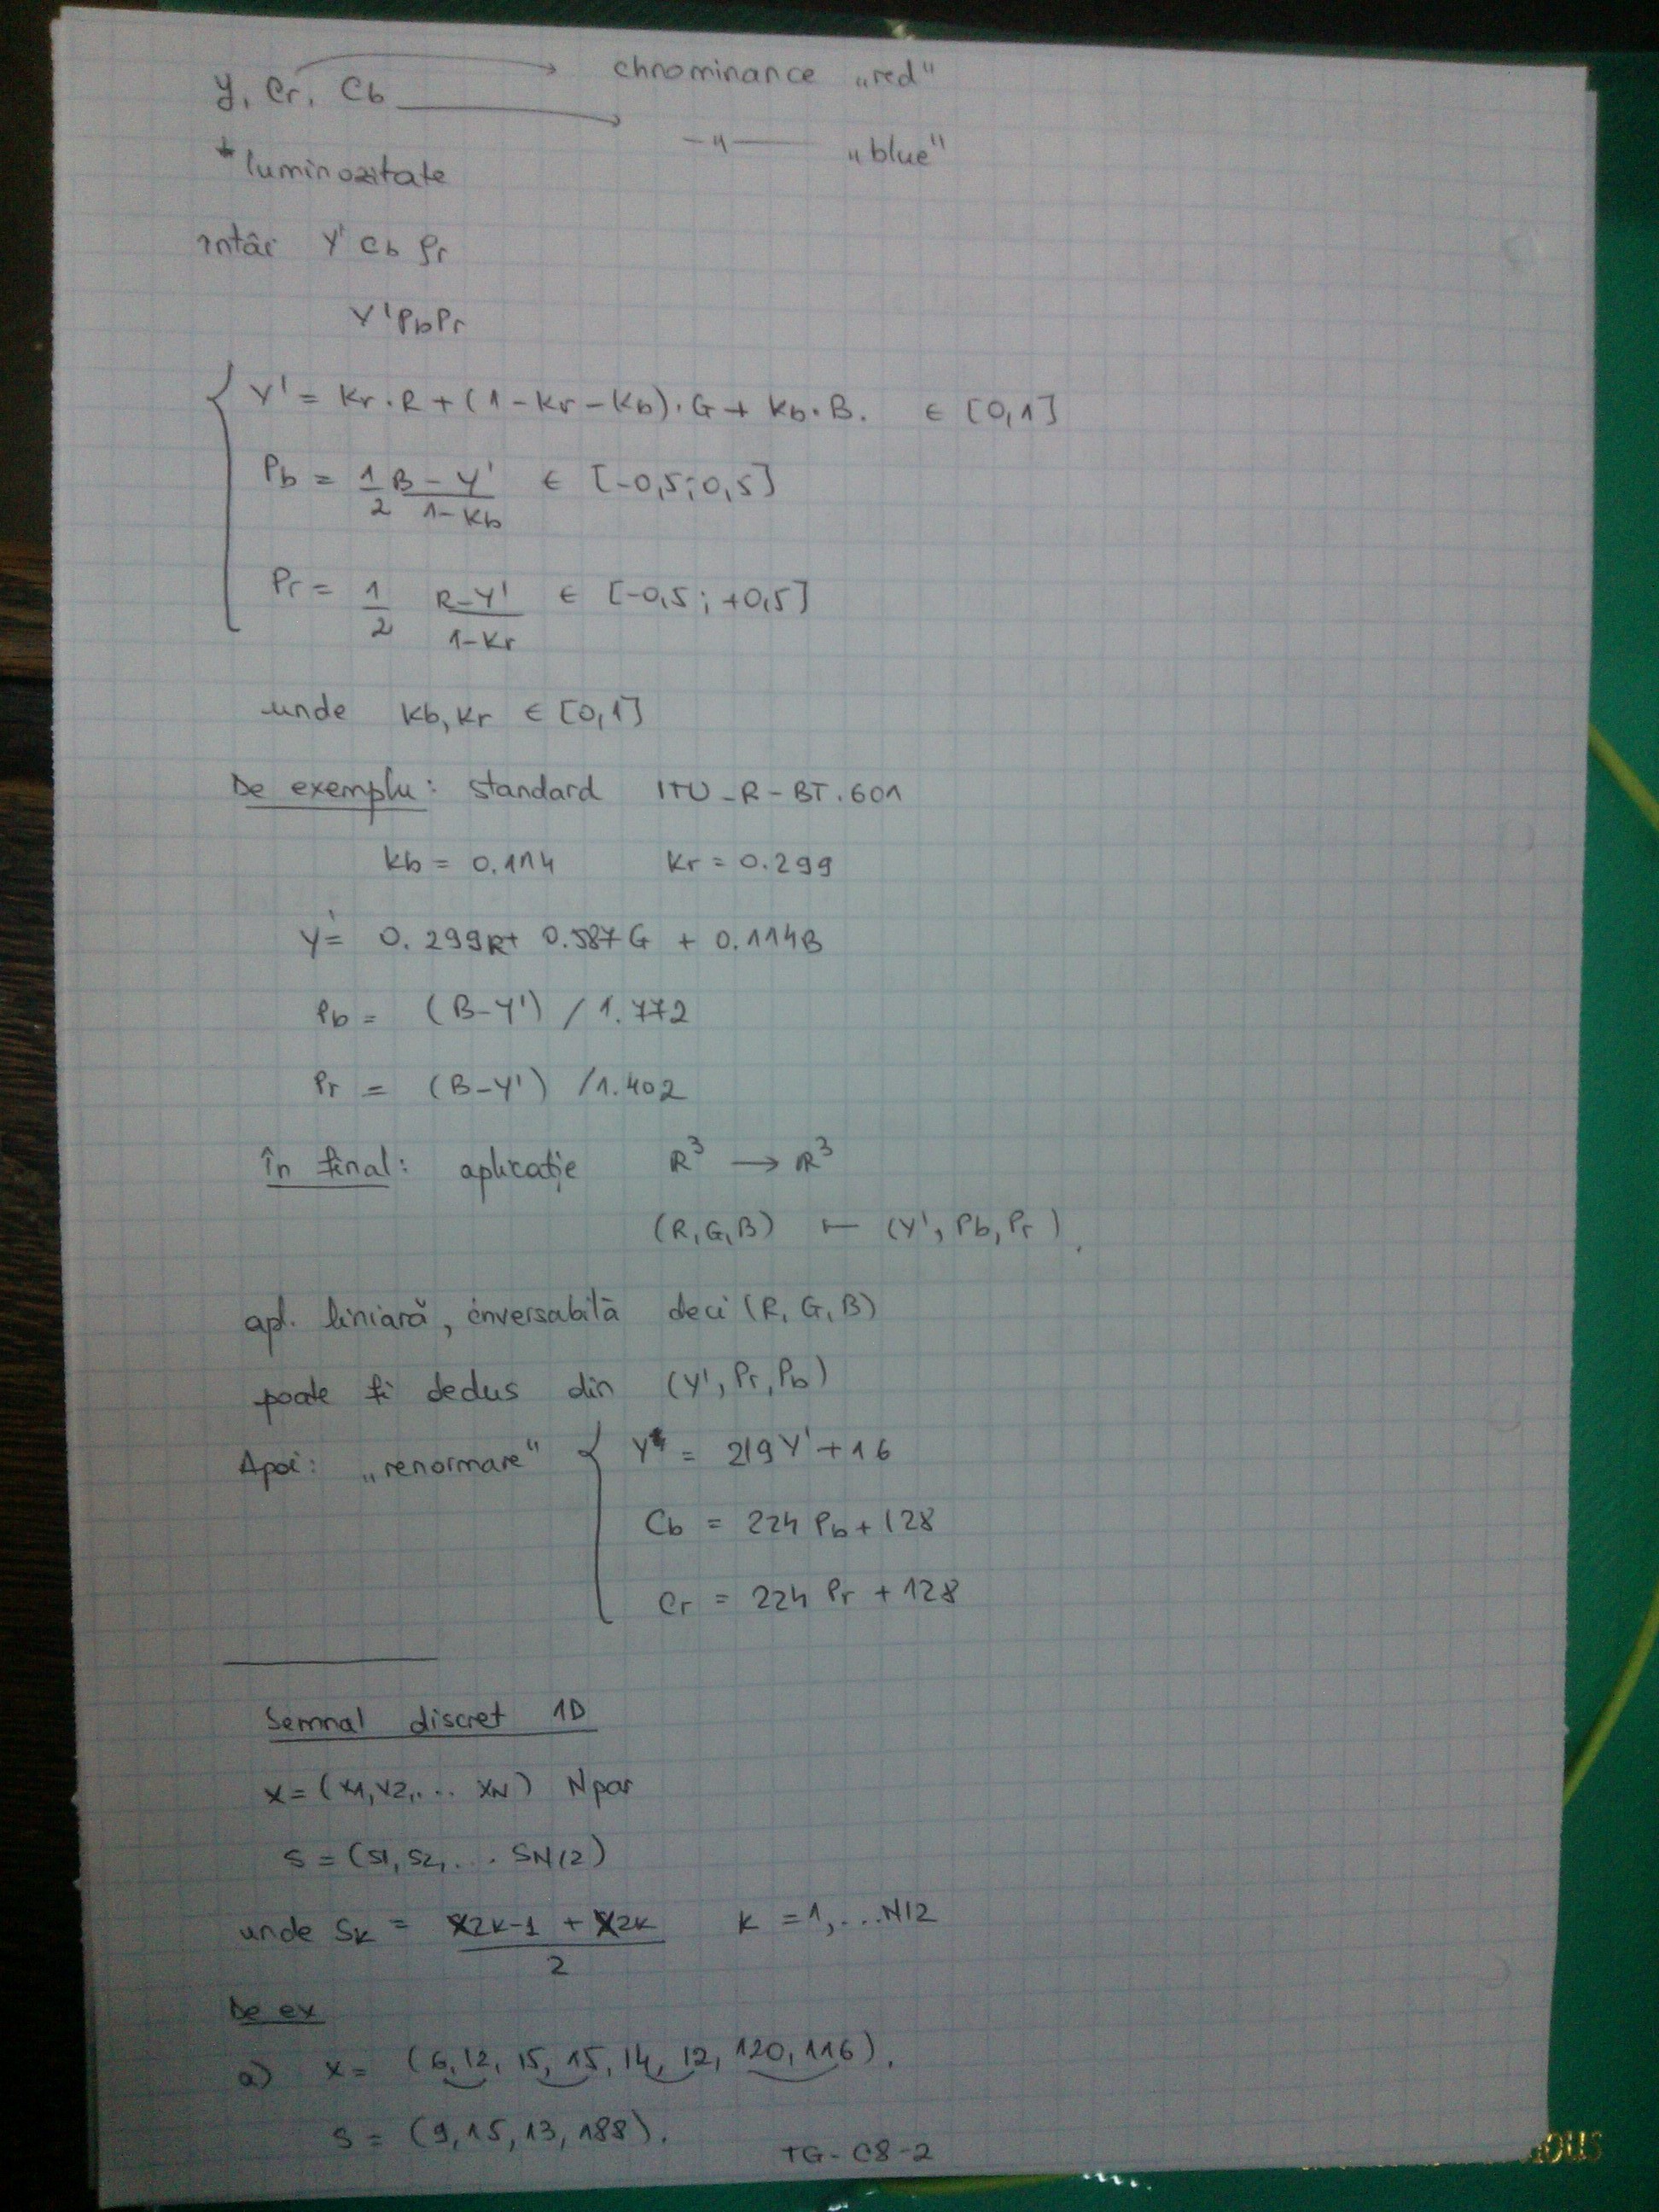 Y, Cr, Cb → chrominance „red"
→ —"— „blue"
luminozitate
întâi Y' Cb Pr
Y'PbPr
Y' = Kr·R + (1-Kr-Kb)·G + Kb·B. ∈ [0,1]
Pb = 1/2 (B-Y')/(1-Kb) ∈ [-0,5;0,5]
Pr = 1/2 (R-Y')/(1-Kr) ∈ [-0,5;+0,5]
unde Kb, Kr ∈ [0,1]
De exemplu: standard ITU-R-BT.601
Kb = 0.114 Kr = 0.299
Y' = 0.299R + 0.587G + 0.114B
Pb = (B-Y') / 1.772
Pr = (B-Y') / 1.402
În final: aplicație R³ → R³
(R,G,B) ⊢ (Y', Pb, Pr).
apl. liniară, inversabilă deci (R, G, B)
poate fi dedus din (Y', Pr, Pb)
Apoi: „renormare" Y = 219Y'+16
Cb = 224 Pb + 128
Cr = 224 Pr + 128
Semnal discret 1D
x = (x1, x2, ... xN) N par
s = (s1, s2, ... sN/2)
unde Sk = (x2k-1 + x2k)/2 k = 1, ...N/2
De ex
a) x = (6, 12, 15, 15, 14, 12, 120, 116).
s = (9, 15, 13, 188).
TG-C8-2